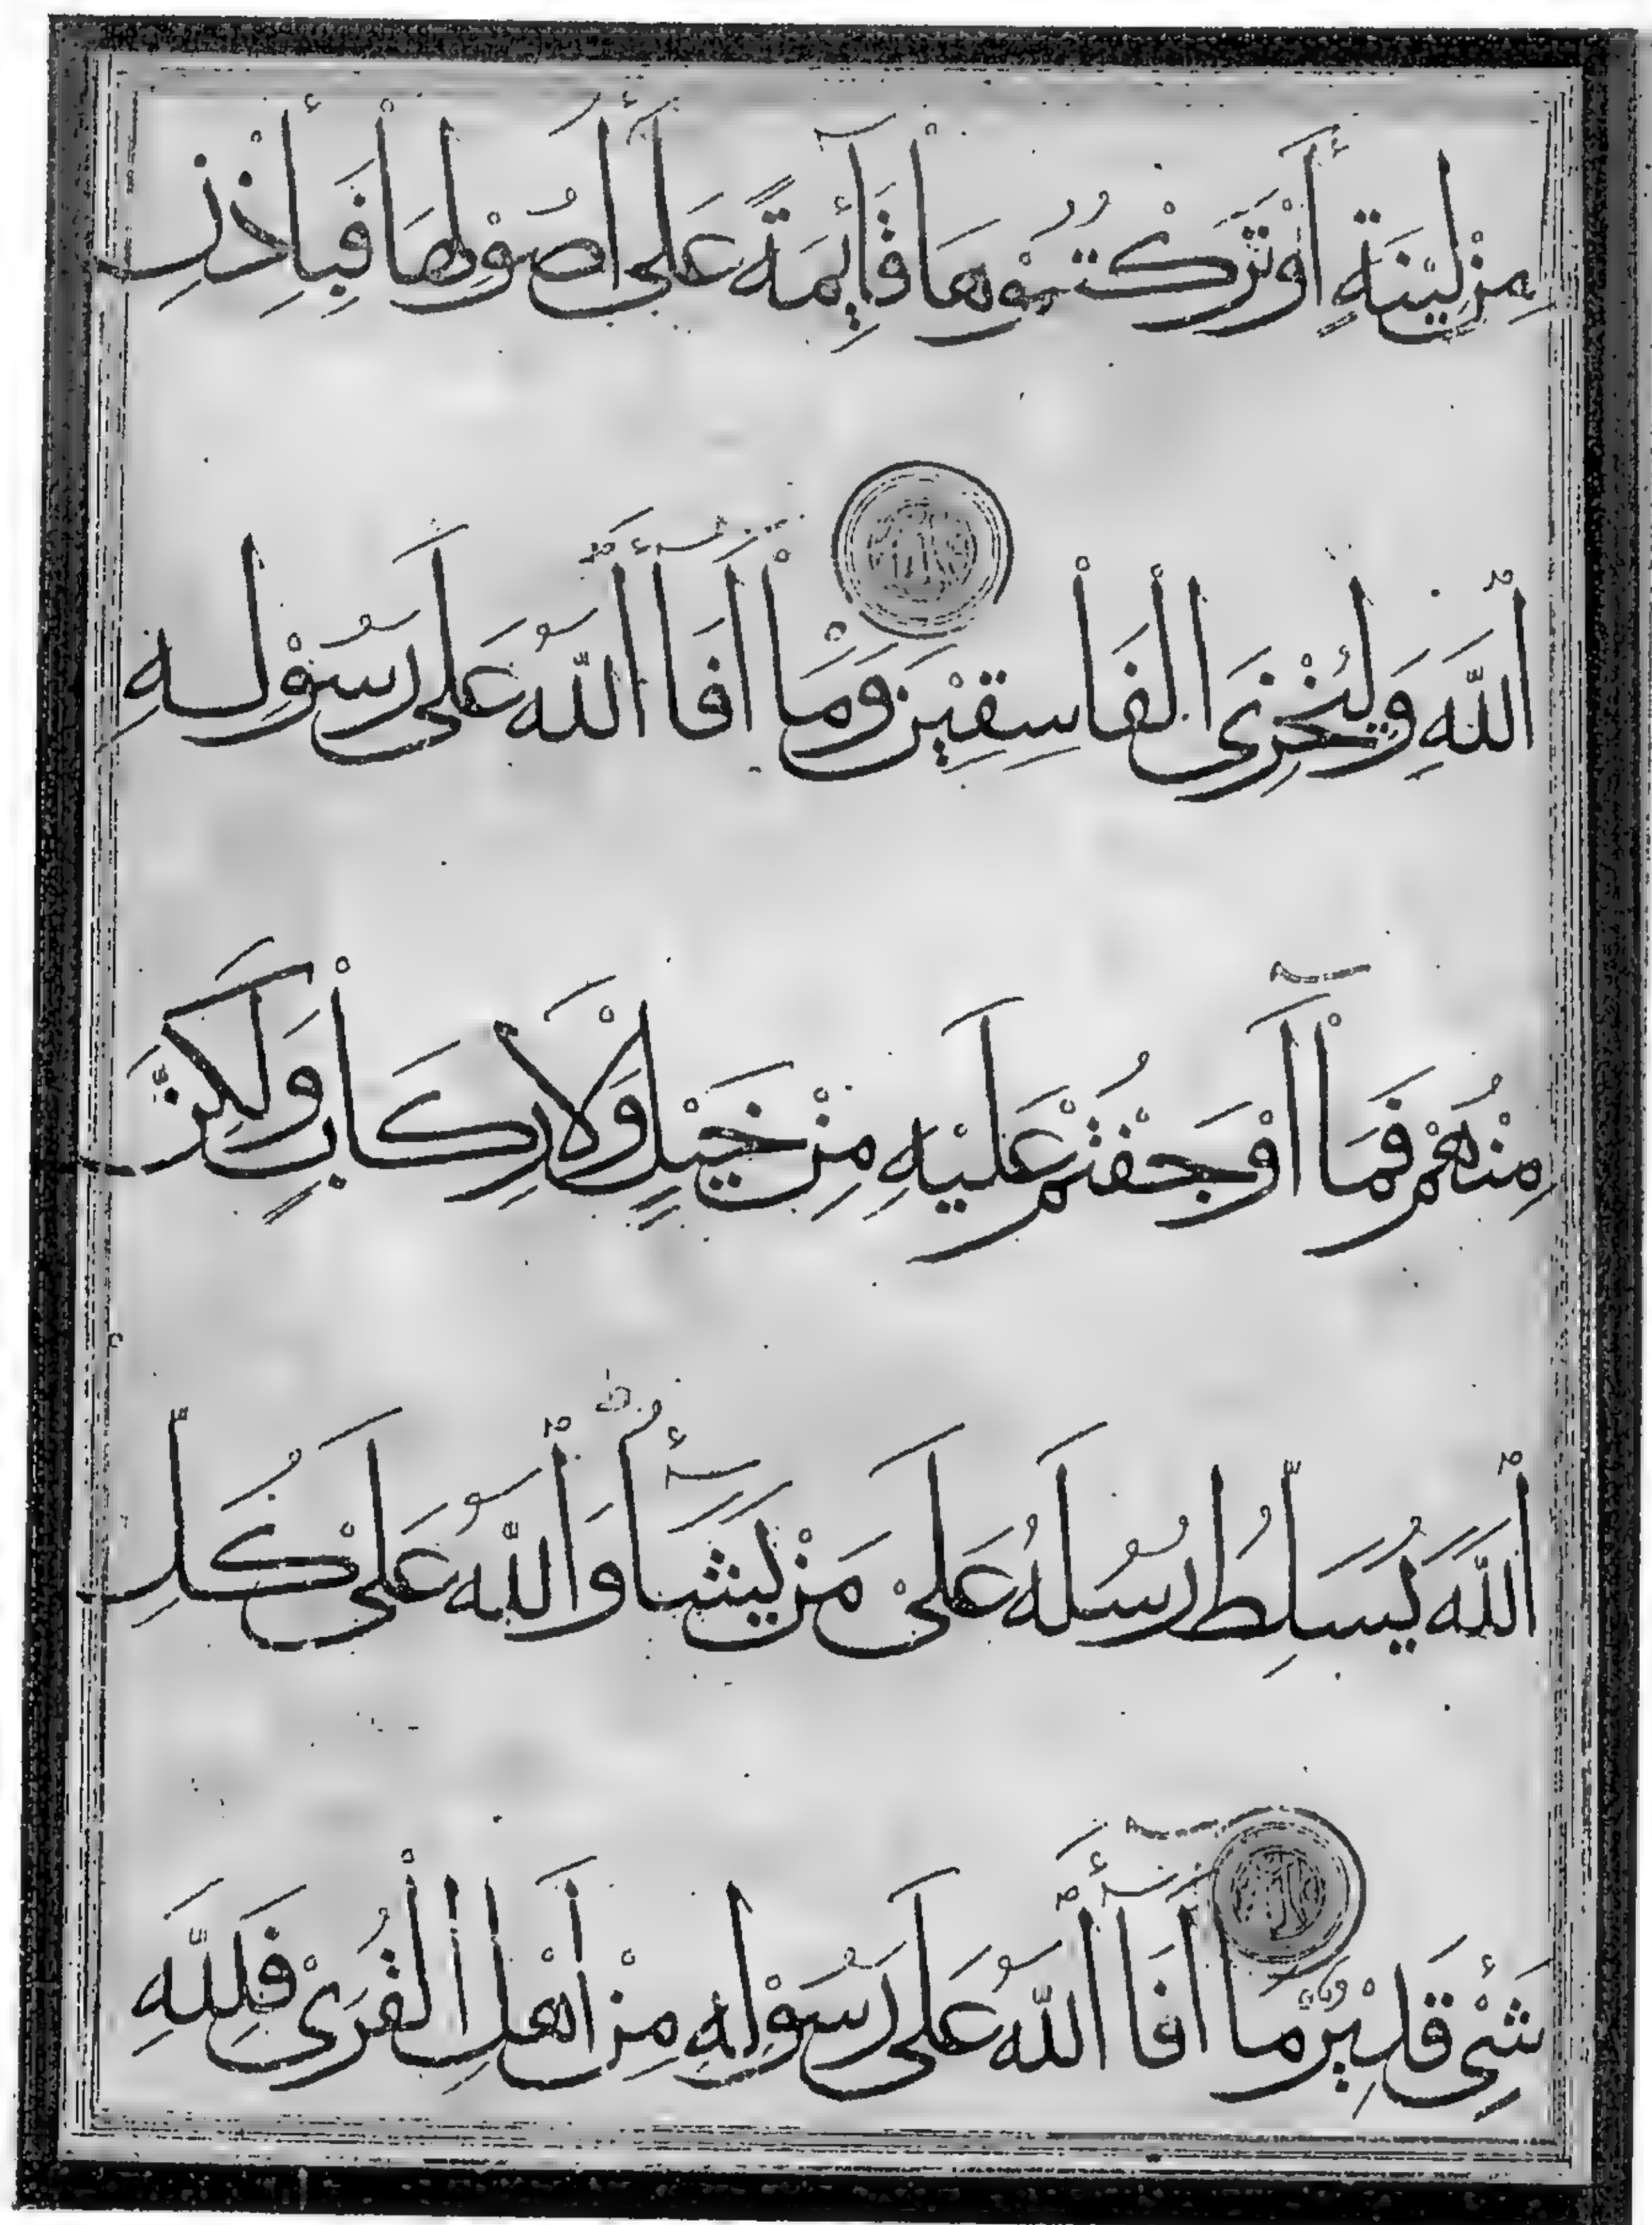 مِنْ لِيْنَةٍ أَوْ تَرَكْتُمُوْهَا قَآئِمَةً عَلَىٰ أُصُوْلِهَا فَبِإِذْنِ
اللّٰهِ وَلِيُخْزِيَ الْفَاسِقِيْنَ وَمَا أَفَآءَ اللّٰهُ عَلَىٰ رَسُوْلِهِ
مِنْهُمْ فَمَآ أَوْجَفْتُمْ عَلَيْهِ مِنْ خَيْلٍ وَلَا رِكَابٍ وَلَكِنَّ
اللّٰهَ يُسَلِّطُ رُسُلَهُ عَلَىٰ مَنْ يَشَآءُ ط وَاللّٰهُ عَلَىٰ كُلِّ
شَيْءٍ قَدِيْرٌ مَا أَفَآءَ اللّٰهُ عَلَىٰ رَسُوْلِهِ مِنْ أَهْلِ الْقُرَىٰ فَلِلّٰهِ